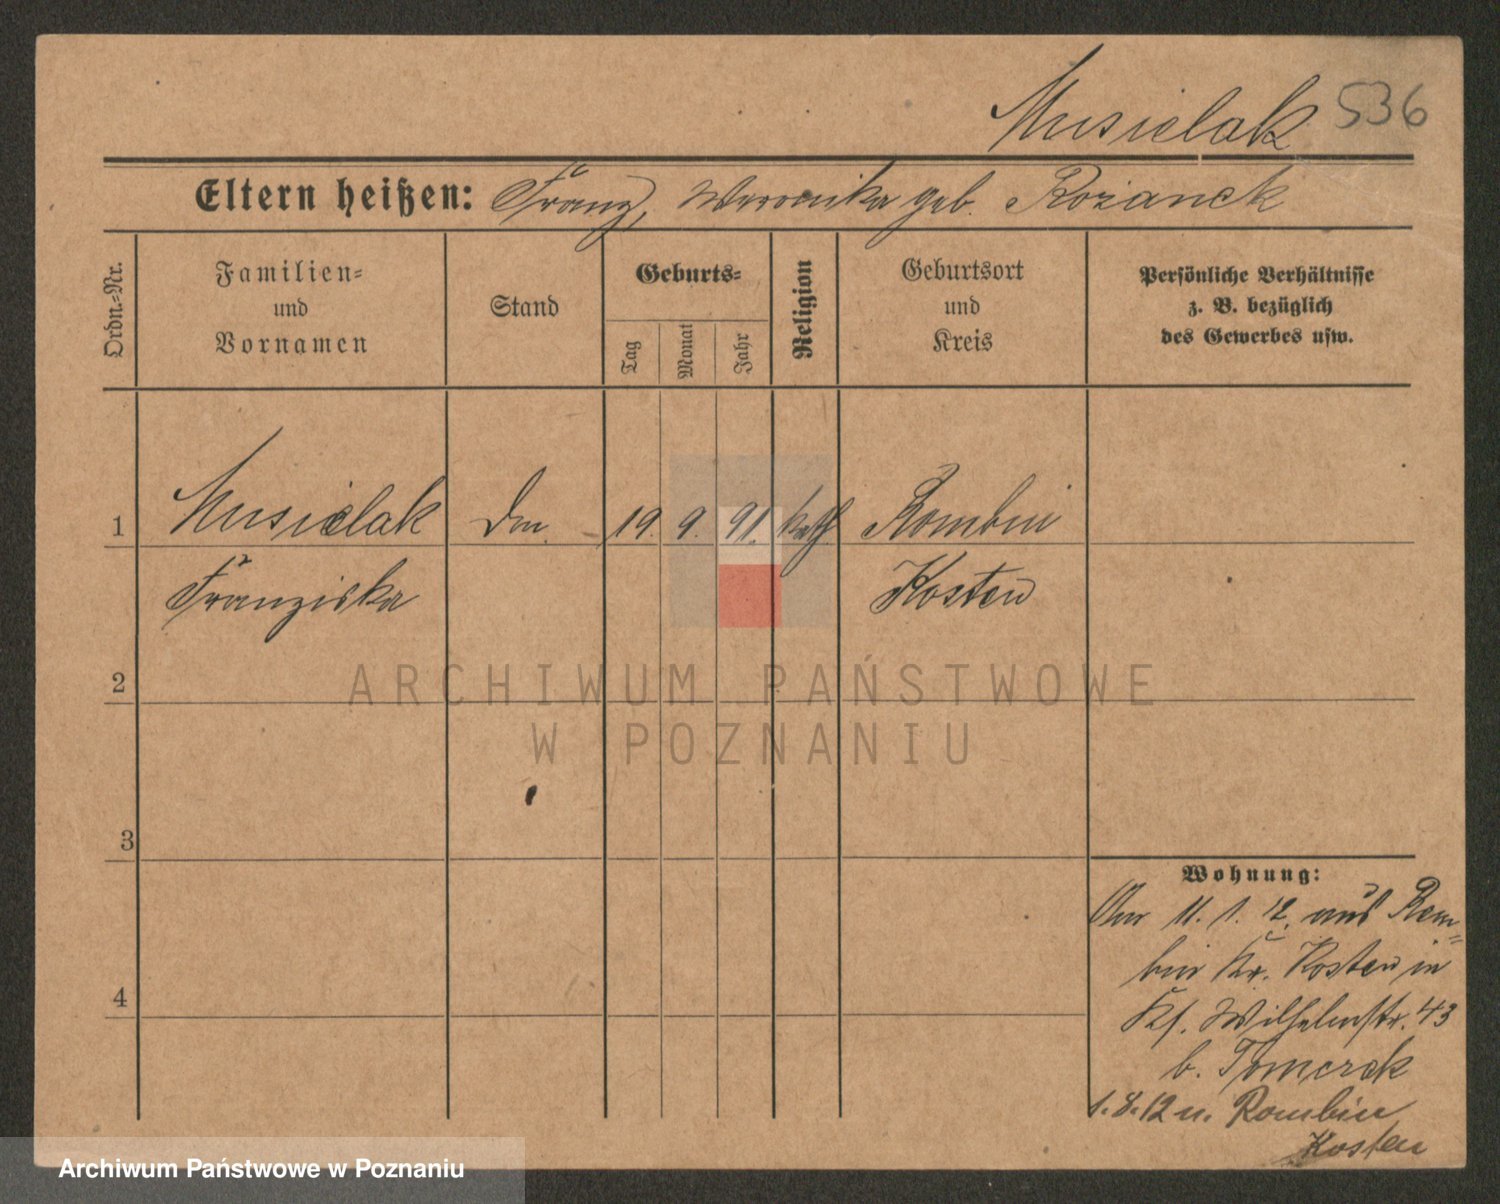 Musielak 536
Eltern heißen: Franz, Weronika geb. Rożanek
Ordn.=Nr.
Familien=
und
Vornamen
Stand
Geburts=
Tag
Monat
Jahr
Religion
Geburtsort
und
Kreis
Persönliche Verhältnisse
z. B. bezüglich
des Gewerbes usw.
1 Musielak 19. 9. 91. kath Rombin
Franziska Kosten
2
3
4
ARCHIWUM PAŃSTWOWE
W POZNANIU
Wohnung:
11. 1. 12. aus Rom=
bin Kr. Kosten in
Wilhelmstr. 43
b. Tomczak
1. 8. 12 n. Rombin
Kosten
Archiwum Państwowe w Poznaniu